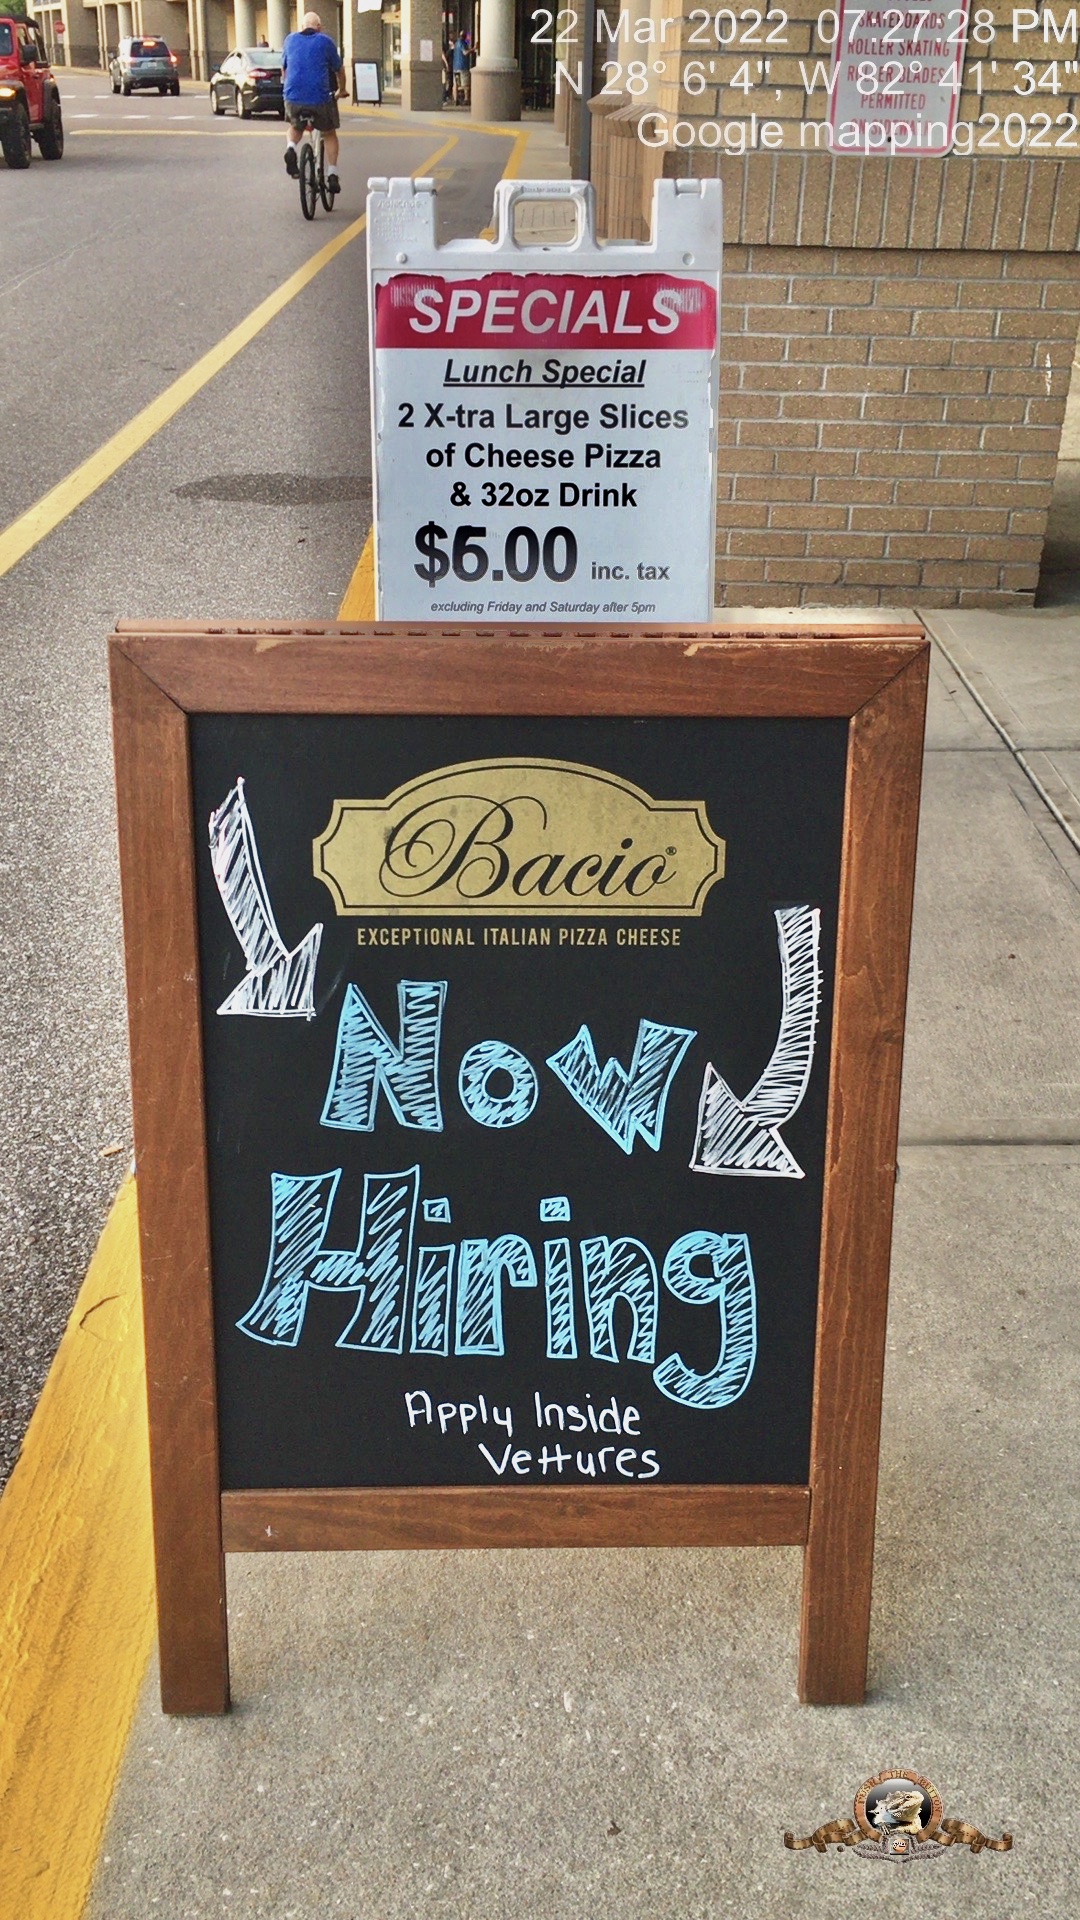 22 Mar 2022 07:27:28 PM
N 28° 6' 4", W 82° 41' 34"
Google mapping2022
SKATEBOARDS
ROLLER SKATING
ROLLER BLADES
PERMITTED
SPECIALS
Lunch Special
2 X-tra Large Slices
of Cheese Pizza
& 32oz Drink
$6.00 inc. tax
excluding Friday and Saturday after 5pm
Bacio®
EXCEPTIONAL ITALIAN PIZZA CHEESE
Now
Hiring
Apply Inside
Vettures